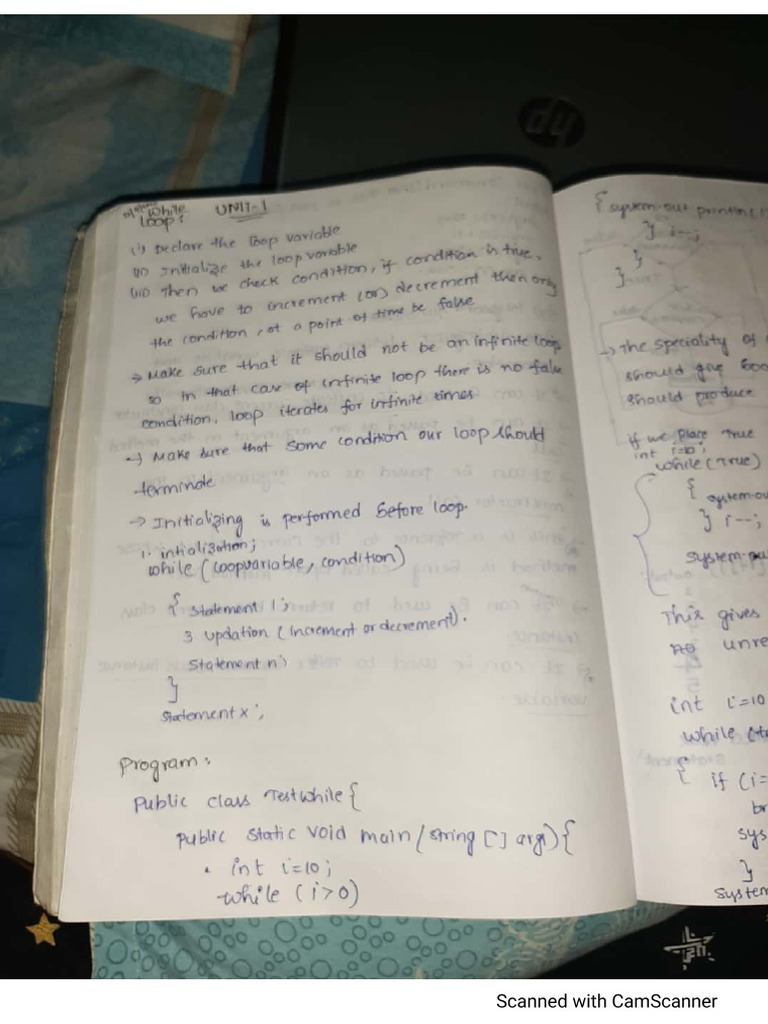 hp
While
Loop: UNIT-1
(i) Declare the loop variable
(ii) Initialize the loop variable
(iii) Then we check condition, if condition is true,
we have to increment (or) decrement then only
the condition, at a point of time be false
→ Make sure that it should not be an infinite loop
so in that case of infinite loop there is no false
condition, loop iterates for infinite times
→ Make sure that some condition our loop should
terminate
→ Initializing is performed before loop.
1. intialization;
while (loopvariable, condition)
{ Statement 1;
3. updation (increment or decrement).
Statement n;
}
Statement x;
Program:
Public class Testwhile {
Public static void main (string [] args) {
int i=10;
while (i>0)
{ system.out println(
} i--;
}
}
→ The speciality of
should give
should produce
if we place true
int i=10;
while (True)
{
} i--;
This gives
no
int i=10
while
{ if (i=
}
system
Scanned with CamScanner